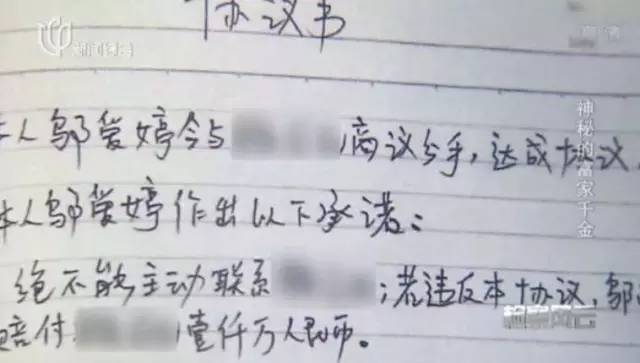 协议书
本人邬爱婷今与
商议分手，达成协议，
本人邬爱婷作出以下承诺：
绝不能主动联系
；若违反本协议，邬
赔付
壹仟万人民币。
神秘的富家千金